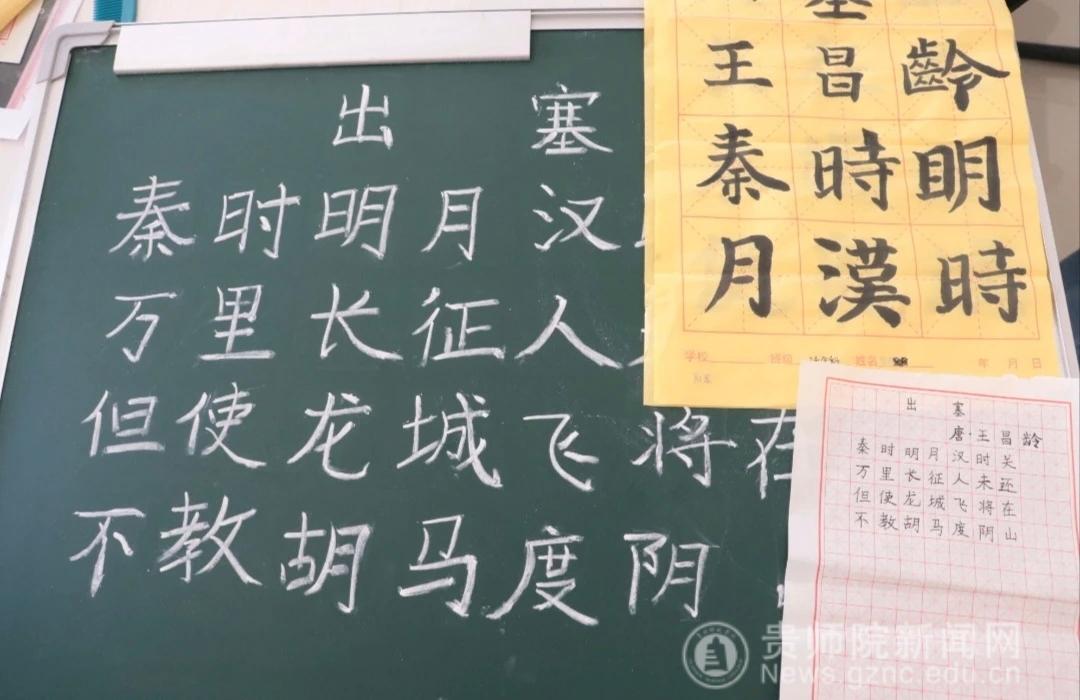 出 塞
秦时明月汉
万里长征人
但使龙城飞将在
不教胡马度阴
塞
王昌齡
秦時明
月漢時
学校 班级 姓名 年 月 日
出 塞
唐·王昌龄
秦时明月汉时关
万里长征人未还
但使龙城飞将在
不教胡马度阴山
贵师院新闻网
News.gznc.edu.cn